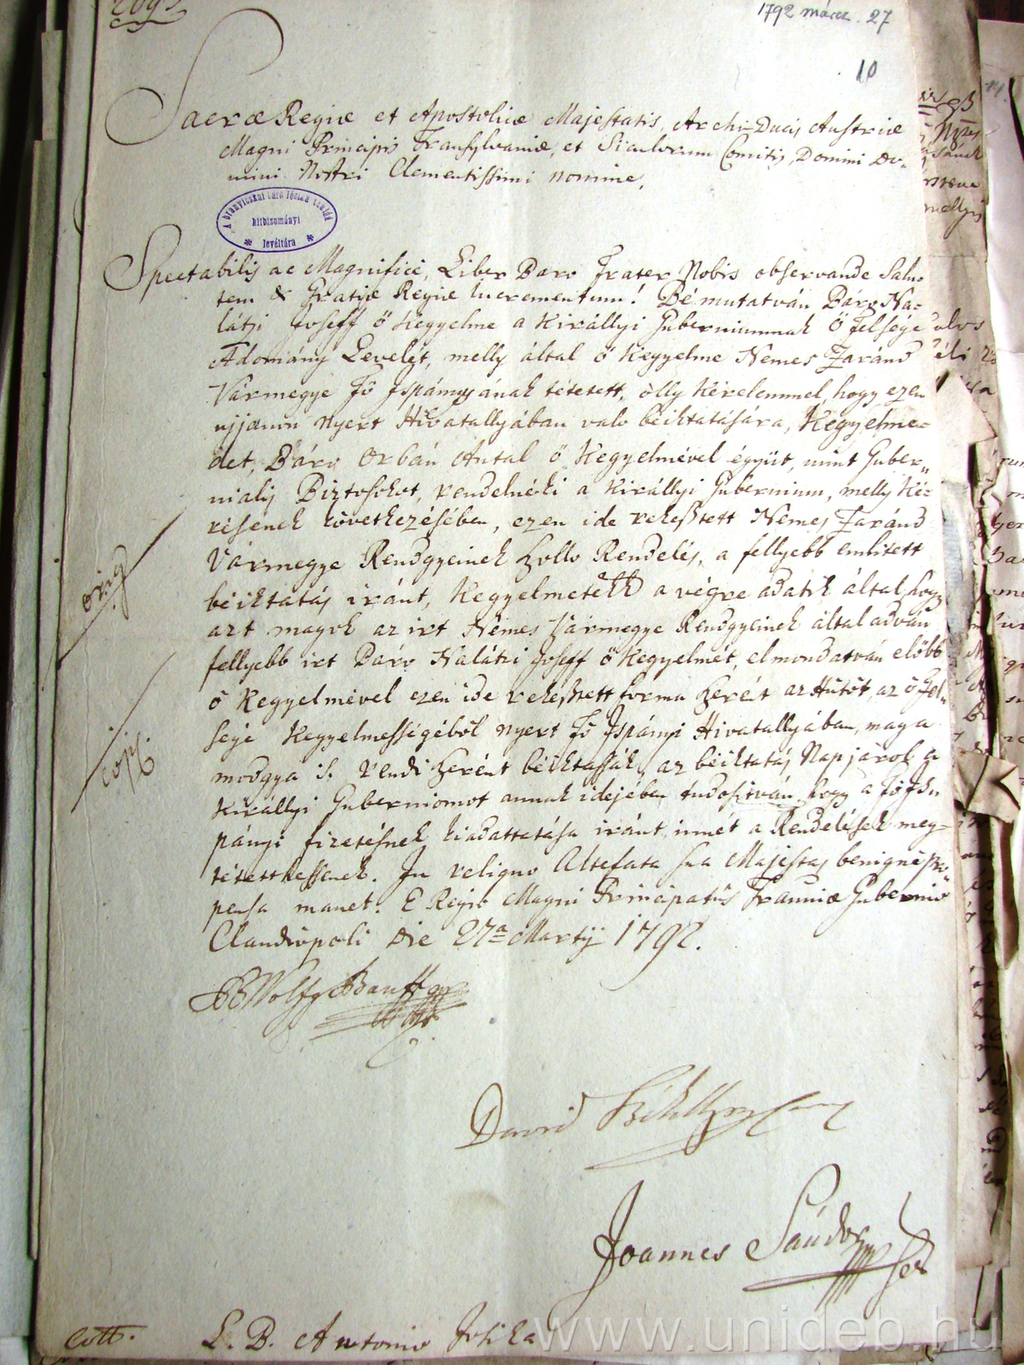 2095
1792 márcz. 27
10
Sacræ Regiæ et Apostolicæ Majestatis, Archi-Ducis Austriæ
Magni Principis Transylvaniæ, et Siculorum Comitis, Domini Do-
mini Nostri Clementissimi nomine.
A branyicskai báró Jósika család
hitbizományi
levéltára
Spectabilis ac Magnifice, Liber Baro Frater Nobis observande Salu-
tem & Gratiæ Regiæ Incrementum! Bé mutatván Báró Na-
látzi Joseff ő Kegyelme a Királlyi Guberniumnak Ő Felsége
Adomány Levelét, melly által ő Kegyelme Nemes Zaránd
Vármegye Fő Ispánnyának tétetett, olly kérelemmel, hogy ezen
ujjanon nyert Hivatallyában valo béiktatására, Kegyelme-
det, Báró Orbán Antal ő Kegyelmével együt, mint Guber-
nialis Biztosokot, rendelnéki a Királlyi Gubernium, melly Ké-
résének következésében, ezen ide rekesztett Nemes Zaránd
Vármegye Rendgyeinek szollo Rendelés, a fellyebb emlitett
béiktatás iránt, Kegyelmetek a végre adatik által, hogy
azt magok az irt Nemes Vármegye Rendgyeinek által adván
fellyebb irt Báró Nalátzi Joseff ő Kegyelmét, el mondatván előbb
ő Kegyelmével ezen ide rekesztett forma szerént az Hütöt, az ő Fel-
sége Kegyelmességéből nyert Fő Ispányi Hivatallyában, maga
modgya 's rendi szerént béiktassák, az béiktatás Napjárol a
Királlyi Guberniomot annak idejében tudositván, hogy a Fő Is-
pányi fizetésnek kiadattatása iránt innét a Rendelések meg-
tétettethessenek. In reliquo Altefata sua Majestas benigne pro-
pensa manet. E Regio Magni Principatûs Tranniæ Gubernio
Claudiopoli Die 27a Martij 1792.
orig
cop.
Wolfg Banffy
David
Joannes Sándor
Secr
Cott.
L. B. Antonio Josika
www.unideb.hu